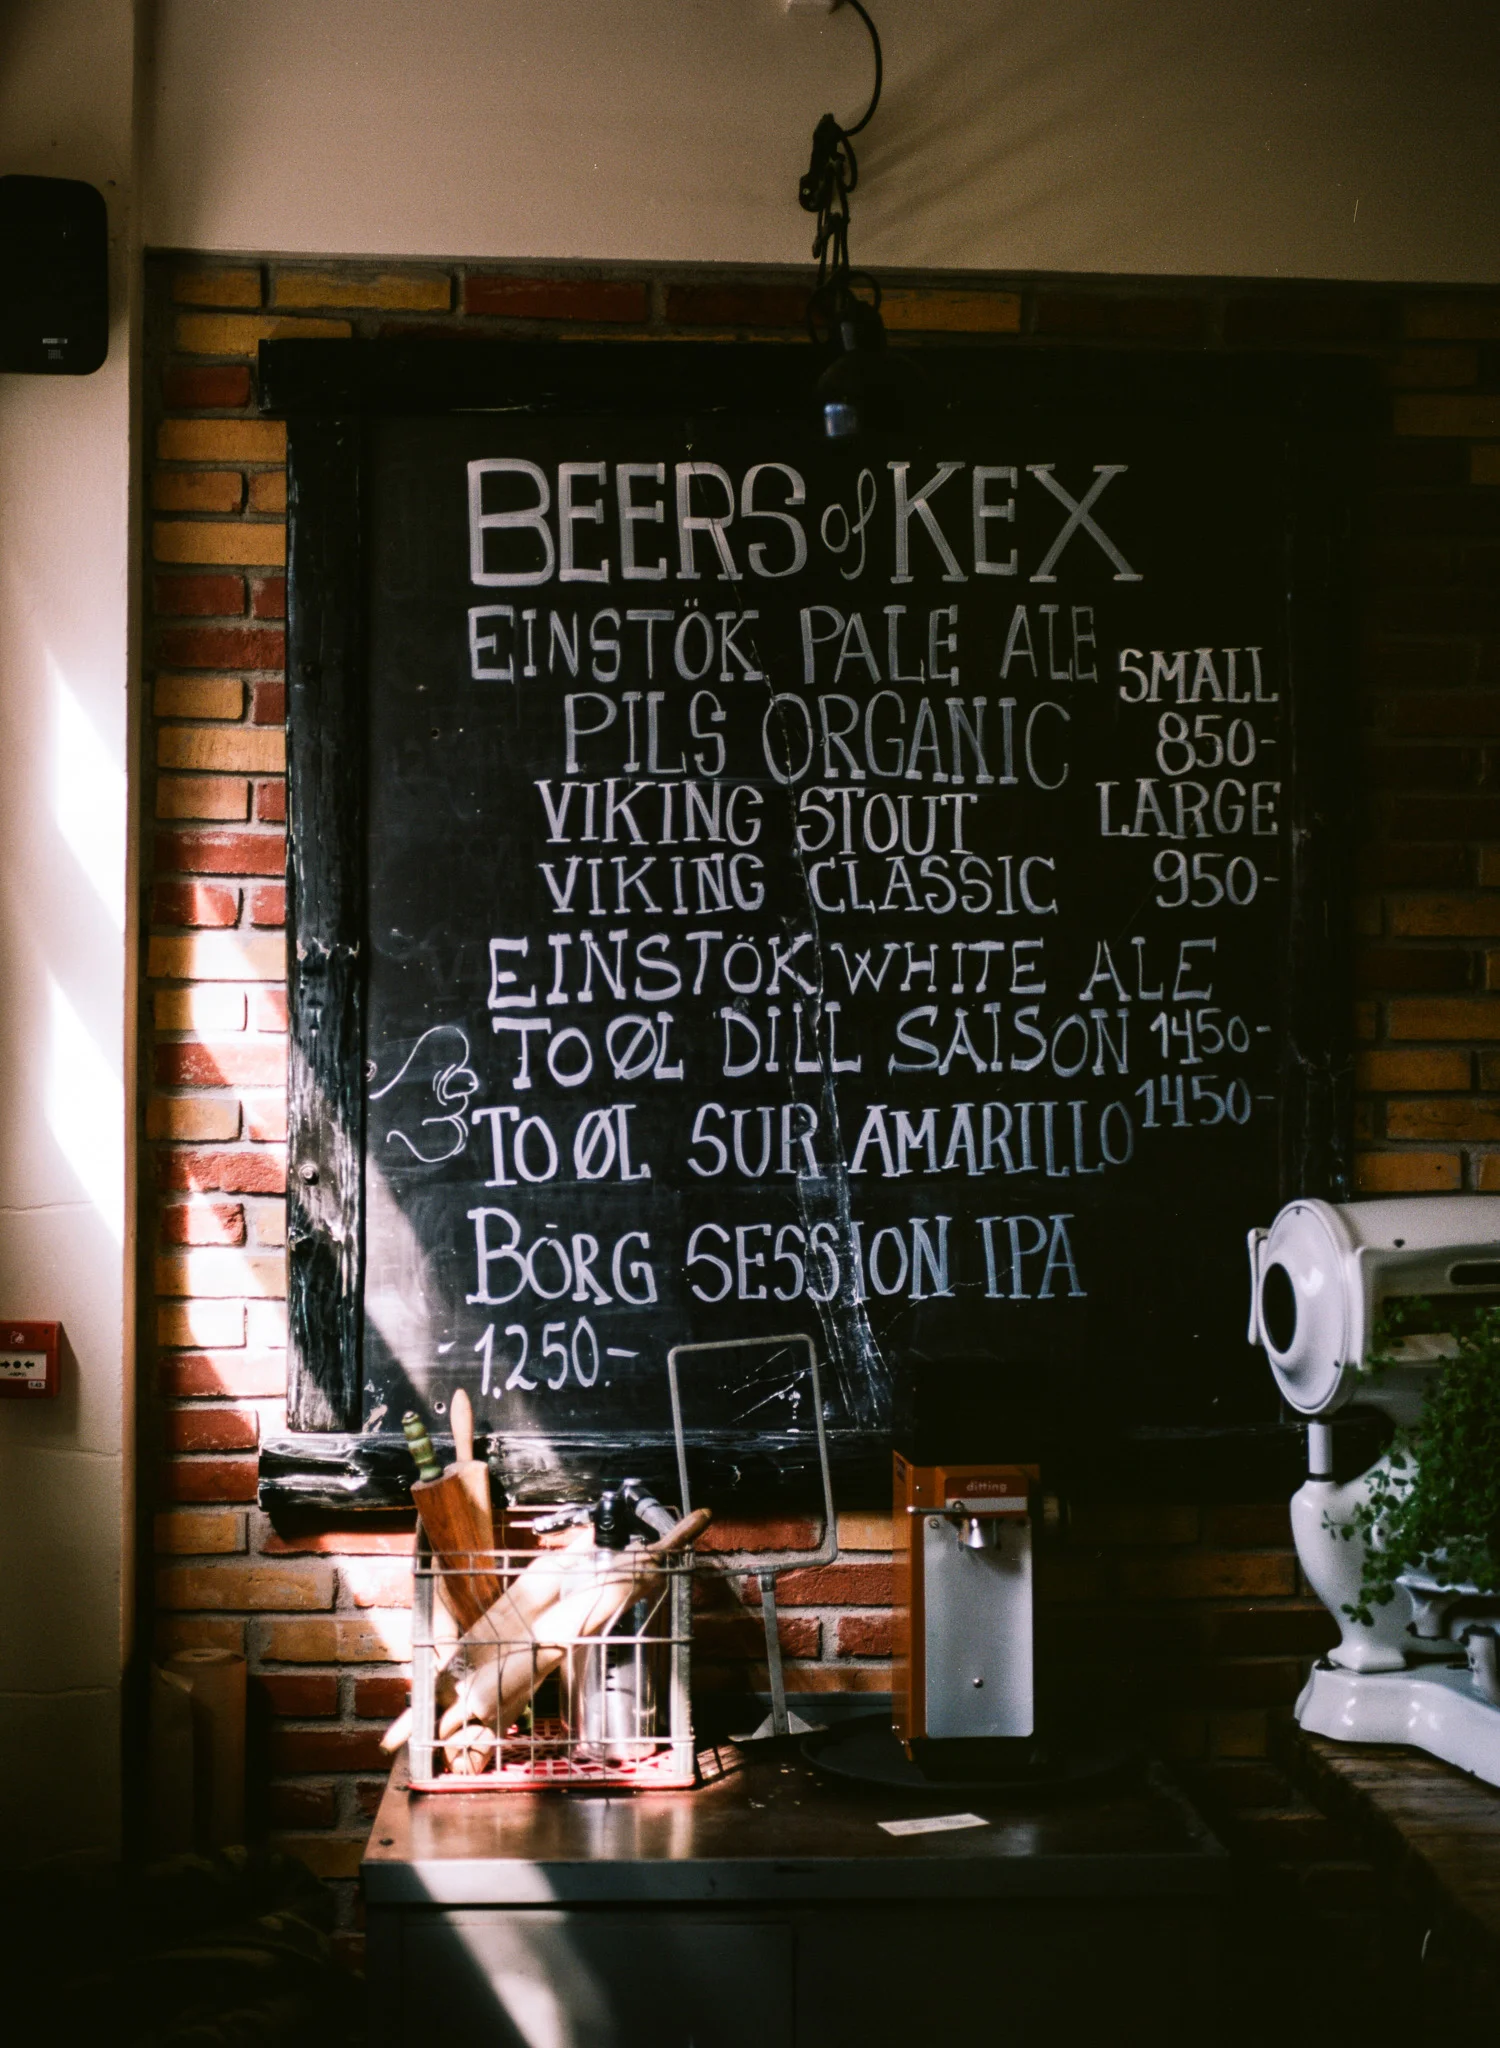 BEERS of KEX
EINSTÖK PALE ALE
SMALL
PILS ORGANIC
850-
VIKING STOUT
LARGE
VIKING CLASSIC
950-
EINSTÖK WHITE ALE
TO ØL DILL SAISON 1450-
TO ØL SUR AMARILLO 1450-
BORG SESSION IPA
- 1.250.-
ditting
JBL